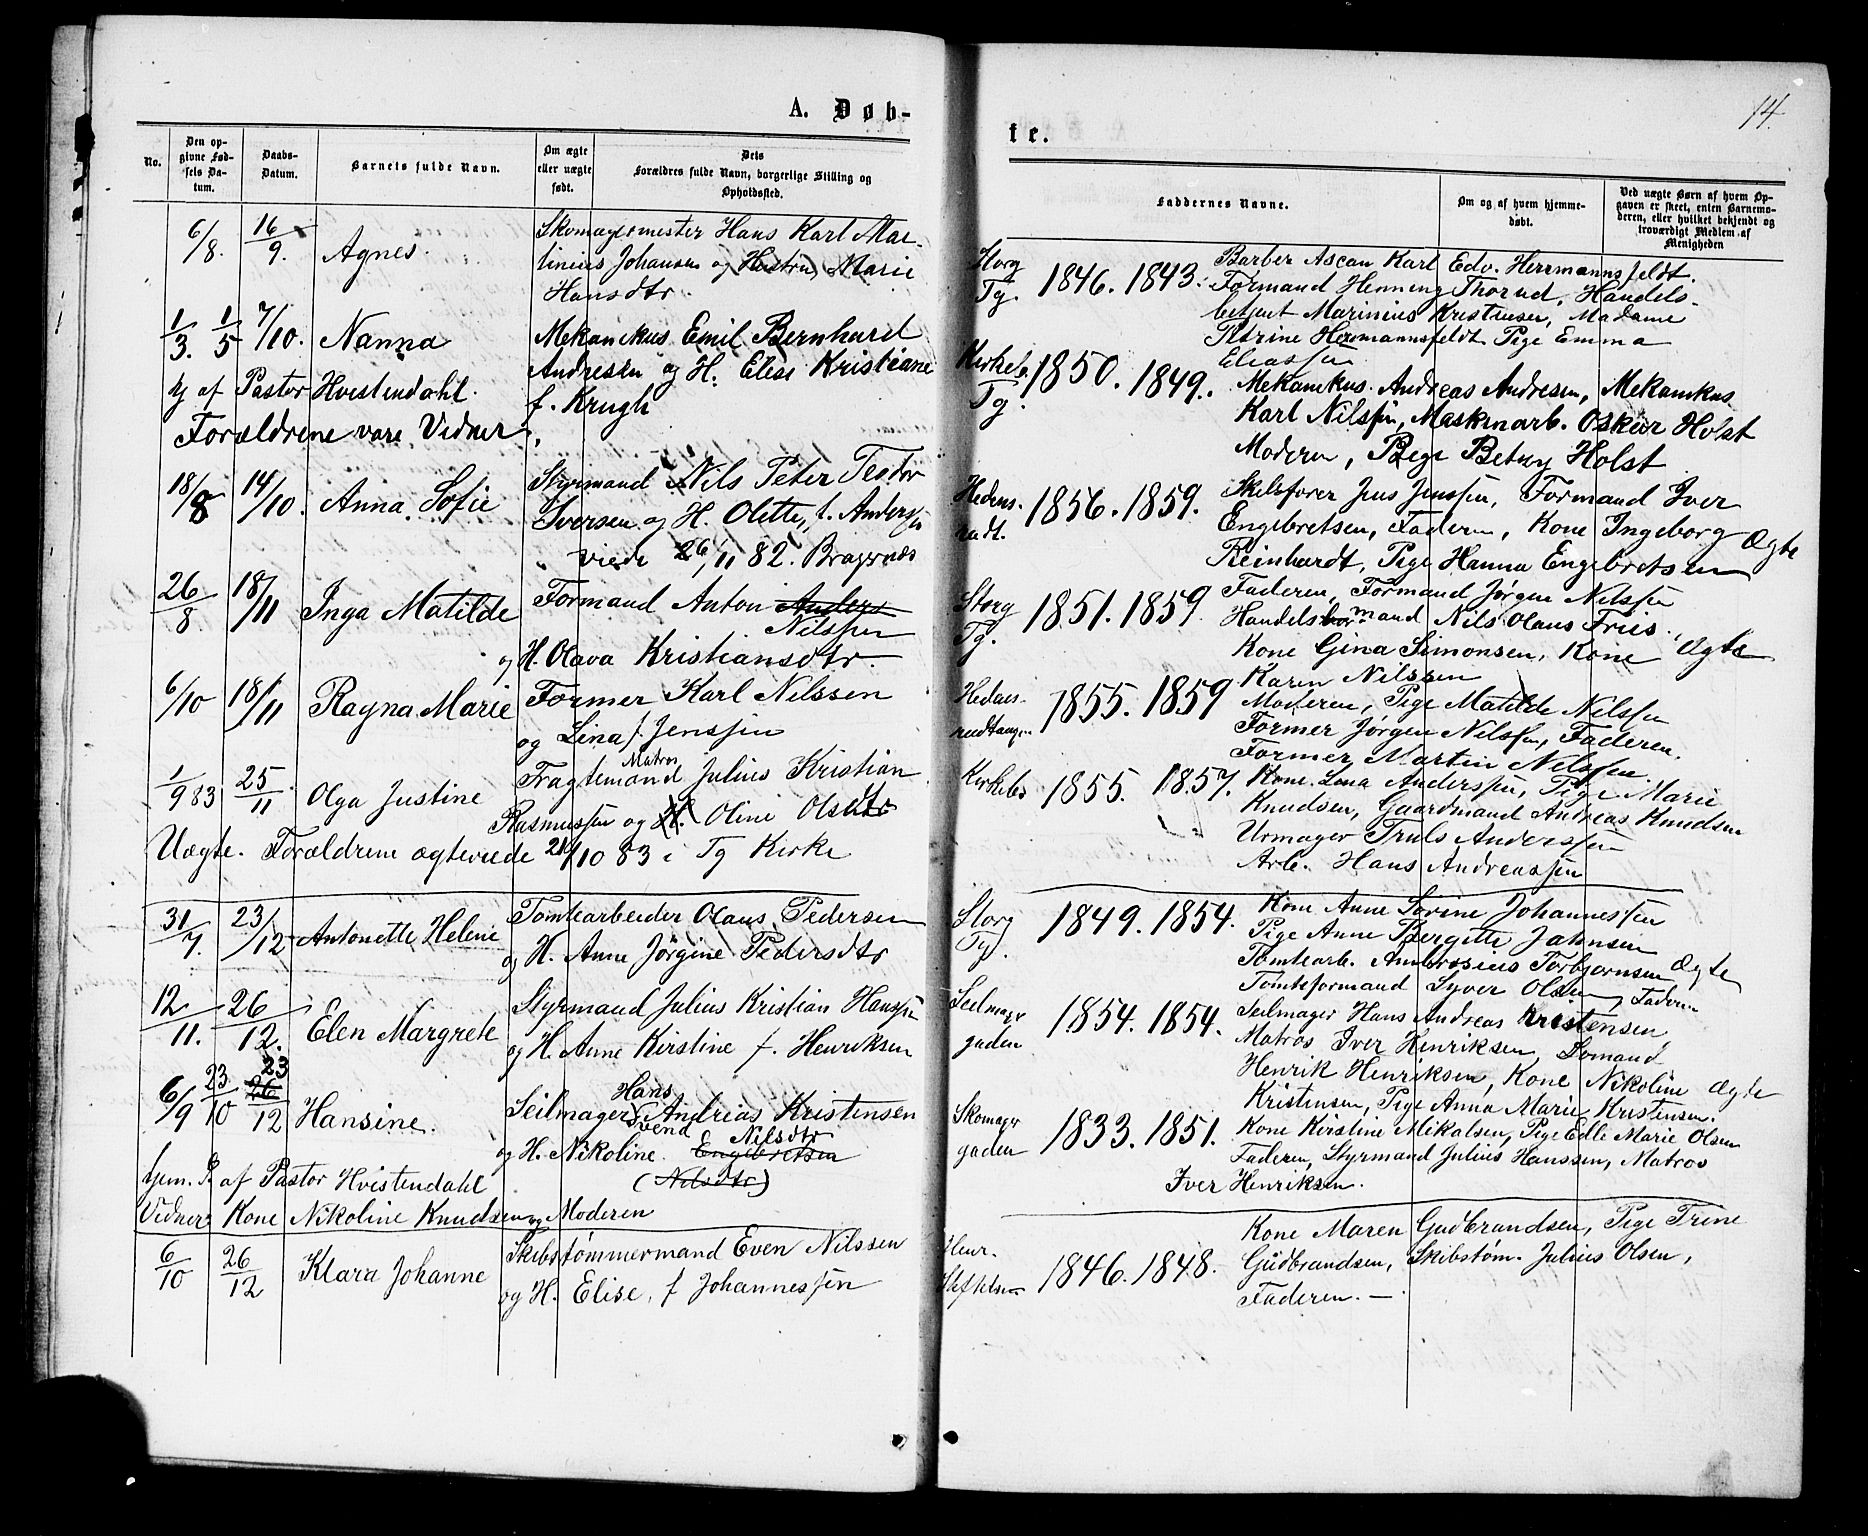 A. Døb-
No.
Den op-
givne Fød-
sels Da-
tum.
Daabs-
Datum.
Barnets fulde Navn.
Om ægte
eller uægte
født.
Dets
Forældres fulde Navn, borgerlige Stilling og
Opholdssted.
6/8. 16/9. Agnes. Skomagermester Hans Karl Mar-
tinius Johansen og Hustru, Marie
Hansdtr.
1/3. 1/5 7/10. Nanna Mekanikus Emil Bernhard
Andresen og H. Elise Kristiane
hj af Pastor Hvistendahl. f. Krugh
Forældrene vare Vidner.
18/8 14/10. Anna Sofie Styrmand Nils Peter Teodor
Iversen og H. Olette, f. Anderssen
viede 26/11 82. Bragernæs
26/8. 18/11 Inga Matilde Formand Anton Anders
Nilssen
og H. Olava Kristiansdtr.
6/10 18/11 Ragna Marie Former Karl Nilssen
og Lina f. Jenssen
1/9 83 25/11 Olga Justine Fragtemand Matros Julius Kristian
Rasmussen og H. Oline Olsdtr
Uægte. Forældrene ægteviede 21/10 83 i Tg Kirke
31/7. 23/12 Antonette Helene Tomtearbeider Olaus Pedersen
og H. Anne Jørgine Pedersdtr
12/11. 26/12. Elen Margrete Styrmand Julius Kristian Hanssen
og H. Anne Kirstine f. Henriksen
6/9 23/10 23 26/12 Hansine. Seilmager Hans Andreas Kristensen
Svend Nilsdtr
og H. Nikoline. Engebretsen
(Nilsdtr)
hjem. d af Pastor Hvistendahl
Vidner: Kone Nikoline Knudsen og Moderen
6/10 26/12 Klara Johanne Skibstømmermand Even Nilssen
og H. Elise, f Johannessen
14.
te.
Faddernes Navne.
Om og af hvem hjemme-
døbt.
Ved uægte Børn af hvem Op-
gaven er skeet, enten Barnemo-
deren, eller hvilket bekjendt og
troværdigt Medlem af
Menigheden
Storg
Tg. 1846. 1843. Barber Ascan Karl Edv. Herrmannsfeldt.
Formand Henning Thorud, Handels-
betjent Marinius Kristensen, Madame
Petrine Herrmannsfeldt Pige Emma
Eliassen
Kirkeb.
Tg. 1850. 1849. Mekanikus Andreas Andresen, Mekanikus
Karl Nilssen, Maskinarb. Oskar Holst
Moderen, Pige Betzy Holst
Hedens-
rudt. 1856. 1859. Skibsfører Jens Jenssen, Formand Iver
Engebretsen, Faderen, Kone Ingeborg Ægte
Reinhardt, Pige Hanna Engebretsen
Storg
Tg. 1851. 1859. Faderen, Formand Jørgen Nilssen
Handelsmand Nils Olaus Friis.
Kone Gina Simonsen, Kone Ægte
Karen Nilssen
Hedens-
rudtangen 1855. 1859 Moderen, Pige Matilde Nilssen
Former Jørgen Nilssen, Faderen.
Former Martin Nilssen.
Kirkeb. 1855. 1857. Kone Lena Anderssen, Pige Marie
Knudsen, Gaardmand Andreas Knudsen
Urmager Truls Anderssen
Arb. Hans Andreassen
Storg
Tg. 1849. 1854. Kone Anne Sorine Johannessen
Pige Anne Bergitte Jahnsen
Tomtearb. Ambrosius Torbjørnsen Ægte
Tomteformand Syver Olsen, Faderen
Seilmager
gaden 1854. 1854. Seilmager Hans Andreas Kristensen,
Matros Iver Henriksen, Sømand
Henrik Henriksen, Kone Nikoline Ægte
Kristensen, Pige Anna Marie Kristensen.
Skomager
gaden 1833. 1851. Kone Kirstine Mikalsen, Pige Edle Marie Olsen
Faderen, Styrmand Julius Hanssen, Matros
Iver Henriksen.
1846. 1848. Kone Maren Gudbrandsen, Pige Trine
Gudbrandsen, Skibstøm. Julius Olsen,
Faderen. —